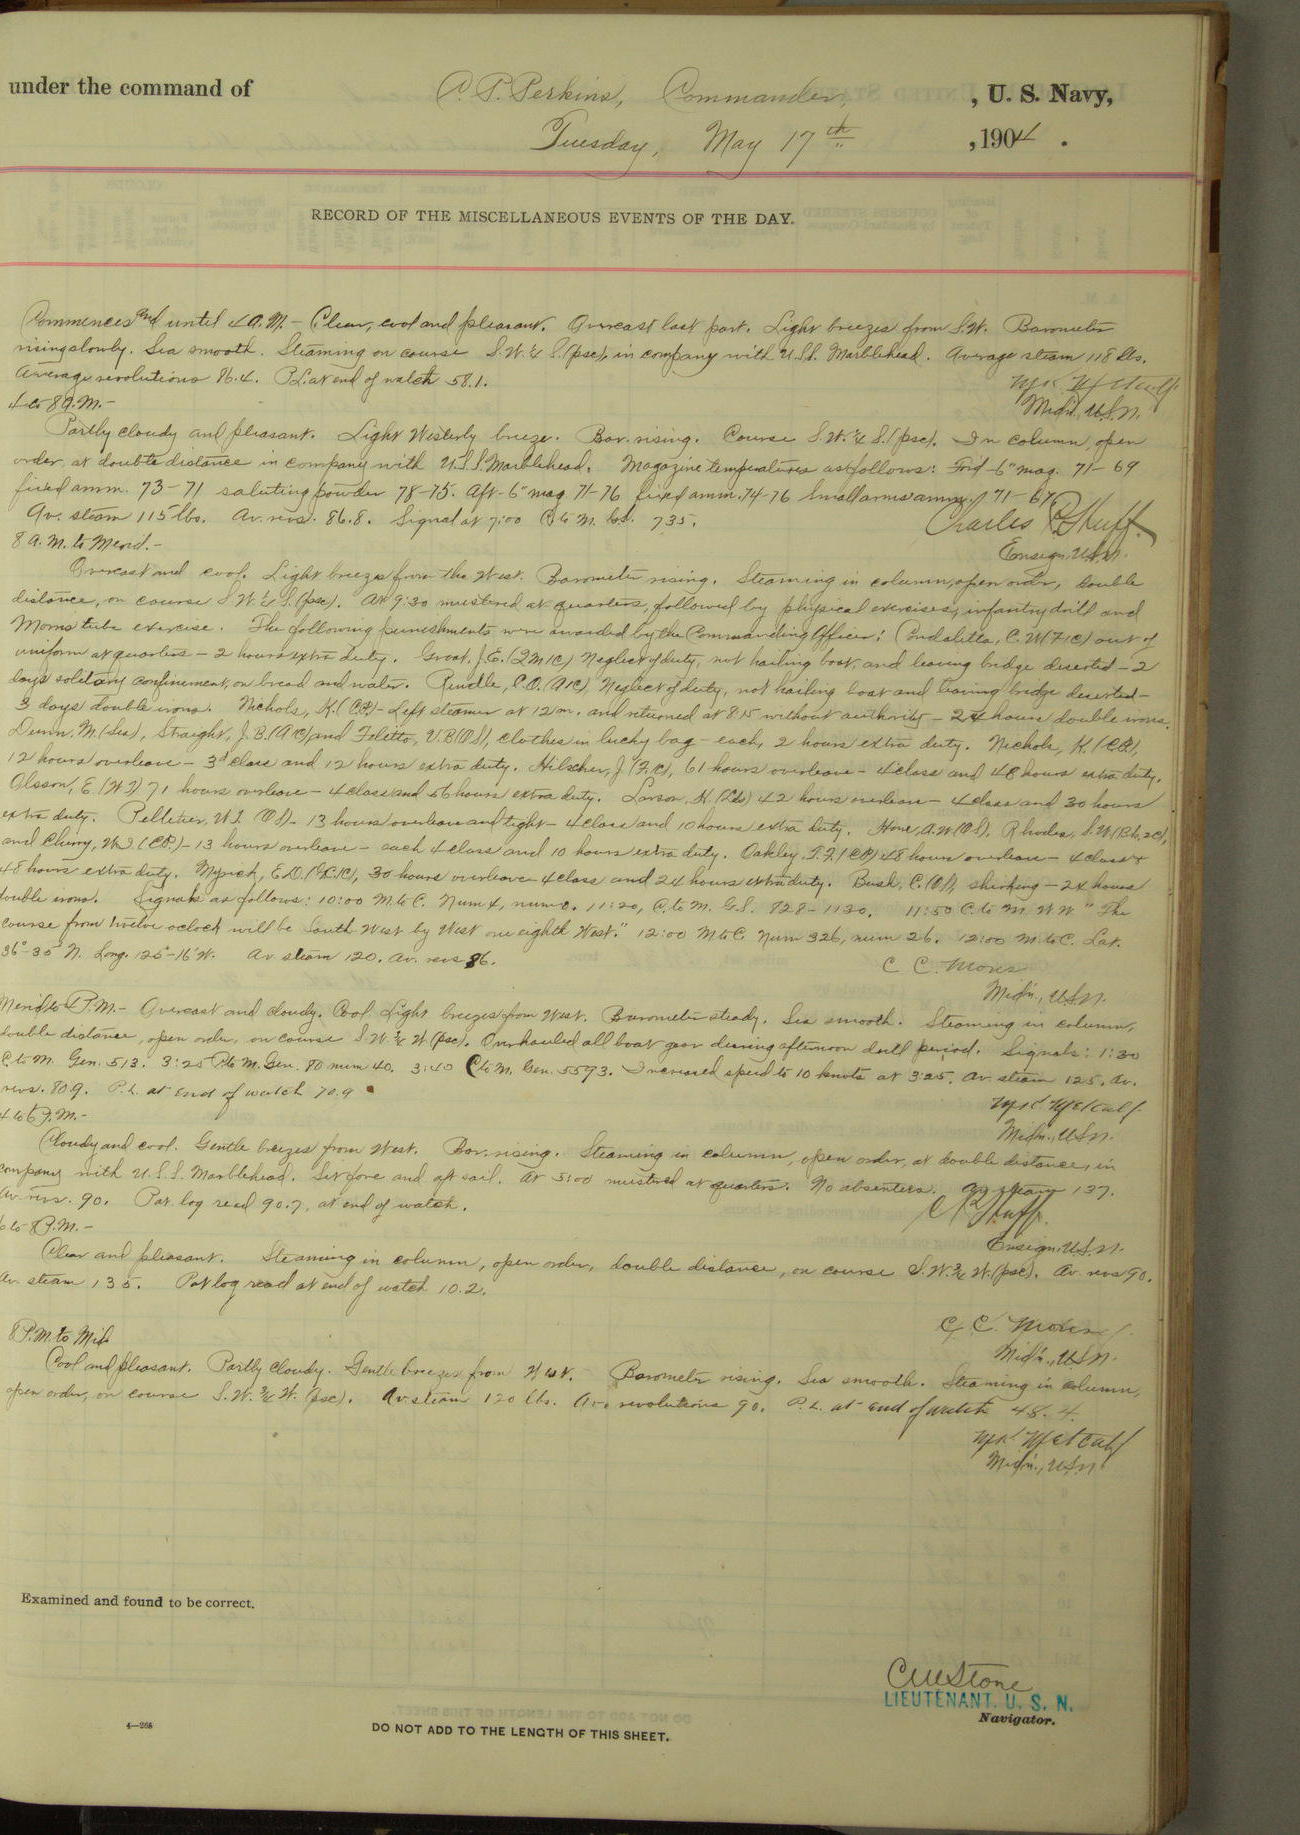 under the command of C. P. Perkins, Commander, , U. S. Navy,
Tuesday, May 17th , 1904 .
RECORD OF THE MISCELLANEOUS EVENTS OF THE DAY.
Commences and until 4 A.M. – Clear, cool and pleasant. Overcast last part. Light breezes from S.W. Barometer
rising slowly. Sea smooth. Steaming on course S.W. ¼ S. (psc), in company with U.S.S. Marblehead. Average steam 118 lbs.
Average revolutions 86.4. P.L. at end of watch 58.1.
Midn. U.S.N.
4 to 8 A.M. –
Partly cloudy and pleasant. Light Westerly breeze. Bar. rising. Course S.W. ¼ S. (psc). In column, open
order, at double distance in company with U.S.S. Marblehead. Magazine temperatures as follows: Fr'd 6" mag. 71–69
fixed amm. 73–71 saluting powder 78–75. Aft 6" mag. 71–76 fixed amm. 74–76 Small arms amm. 71–67
Av. steam 115 lbs. Av. revs. 86.8. Signal at 7:00 C to M. 735.
Charles
Ensign, U.S.N.
8 A.M. to Merid. –
Overcast and cool. Light breezes from the West. Barometer rising. Steaming in column, open order, double
distance, on course S.W. ¼ S. (psc). At 9:30 mustered at quarters, followed by physical exercises, infantry drill and
Morris tube exercise. The following punishments were awarded by the Commanding Officer: C. W. (F1C) out of
uniform at quarters – 2 hours extra duty. Groat, J.E. (QM1C) Neglect of duty, not hailing boat, and leaving bridge deserted – 2
days solitary confinement, on bread and water. C.O. Neglect of duty, not hailing boat and leaving bridge deserted –
3 days double irons. Nichols, K. (CP) – Left steamer at 12 m. and returned at 8:15 without authority – 24 hours double irons.
Dunn, M. (Sea), Straight, J.B. and Foletto, V.B. (OS), clothes in lucky bag – each, 2 hours extra duty. Nichols, K. (CP),
12 hours overleave – 3d class and 12 hours extra duty. Hilscher, J. (F1C), 61 hours overleave – 4 class and 48 hours extra duty.
Olsson, E. (WT) 71 hours overleave – 4 class and 56 hours extra duty. Larson, K. (Lds) 42 hours overleave – 4 class and 30 hours
extra duty. Pelletier, W.J. (OS) – 13 hours overleave and tight – 4 class and 10 hours extra duty. A.W. (OS), Rhodes, S.W.
and Cherry, (CP) – 13 hours overleave – each 4 class and 10 hours extra duty. Oakley, T.F. (CP) 48 hours overleave – 4 class &
48 hours extra duty. E.D. 30 hours overleave 4 class and 24 hours extra duty. Bush, C. (OS), shirking – 24 hours
double irons. Signals as follows: 10:00 M. to C. 11:20, C. to M. G.S. 828–1130. 11:50 C. to M. W.W. "The
course from twelve oclock will be South West by West one eighth West." 12:00 M. to C. Num 326, num 26. 12:00 M. to C. Lat.
36°-35' N. Long. 125°-16' W. Av. steam 120. Av. revs 86.
C. C.
Midn., U.S.N.
Merid to 4 P.M. – Overcast and cloudy. Cool. Light breezes from West. Barometer steady. Sea smooth. Steaming in column,
double distance, open order, on course S.W. ¾ W. (psc). Overhauled all boat gear during afternoon drill period. Signals: 1:30
C. to M. Gen. 513. 3:25 to M. Gen. 80 num 40. 3:40 C to M. Gen. 5593. Increased speed to 10 knots at 3:25. Av. steam 125. Av.
revs. 80.9. P.L. at end of watch 70.9
Metcalf
Midn., U.S.N.
4 to 6 P.M. –
Cloudy and cool. Gentle breezes from West. Bar. rising. Steaming in column, open order, at double distance, in
company with U.S.S. Marblehead. Set fore and aft sail. At 5:00 mustered at quarters. No absentees. Av. steam 137.
Av. revs. 90. Pat. log read 90.7, at end of watch.
Ensign, U.S.N.
6 to 8 P.M. –
Clear and pleasant. Steaming in column, open order, double distance, on course S.W. ¾ W. (psc). Av. revs 90.
Av. steam 135. Pat log read at end of watch 10.2.
C. C.
Midn., U.S.N.
8 P.M. to Mid.
Cool and pleasant. Partly cloudy. Gentle breezes from West. Barometer rising. Sea smooth. Steaming in column,
open order, on course S.W. ¾ W. (psc). Av. steam 120 lbs. Av. revolutions 90. P.L. at end of watch 48.4.
Metcalf
Midn., U.S.N.
Examined and found to be correct.
C M Stone
LIEUTENANT. U. S. N.
Navigator.
4—268
DO NOT ADD TO THE LENGTH OF THIS SHEET.